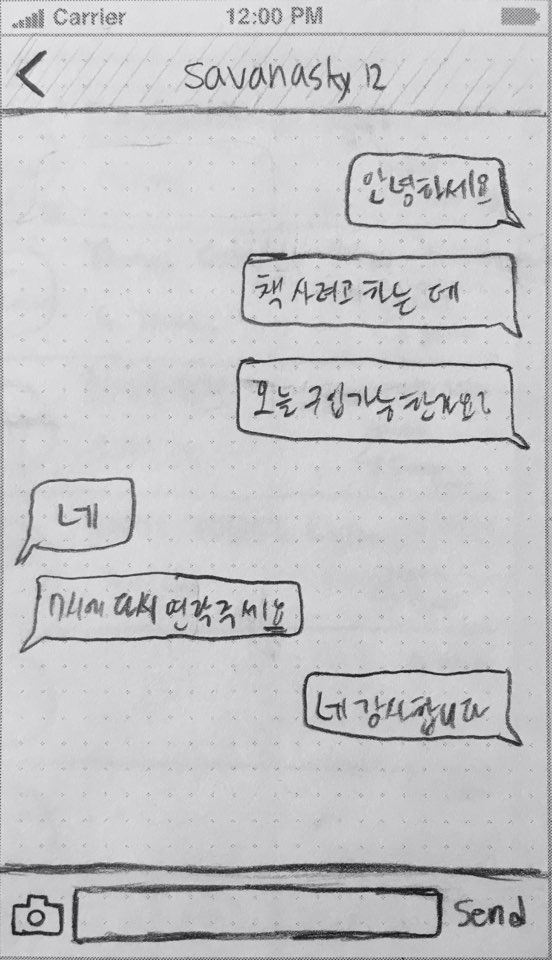 Carrier 12:00 PM
savanasky 12
안녕하세요
책 사려고 하는 데
오늘 구입가능 한가요?
네
7시에 다시 연락주세요
네 감사합니다
Send